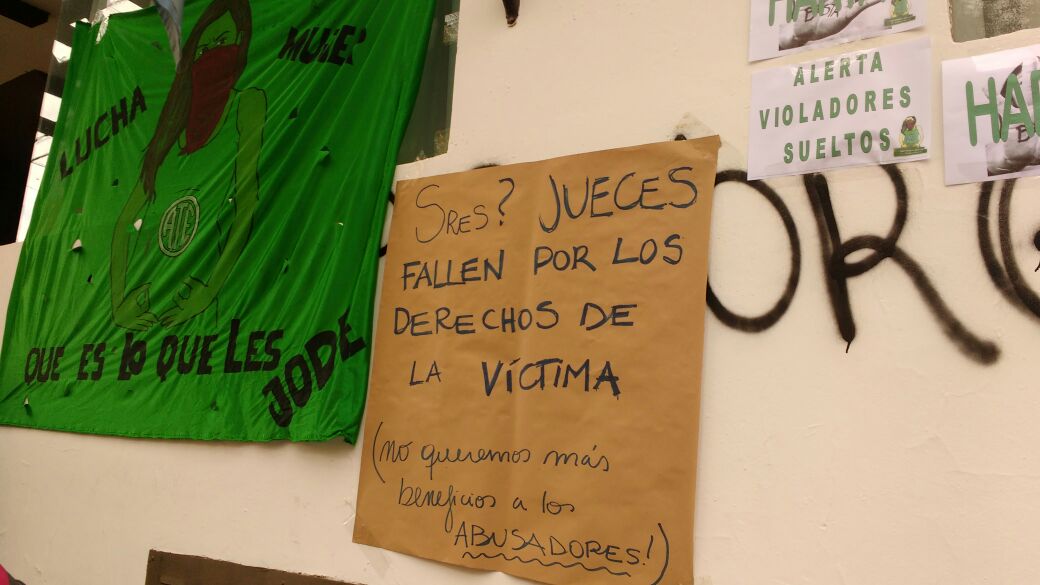 LUCHA
MUJER
ATE
QUE ES LO QUE LES
JODE
SRES? JUECES
FALLEN POR LOS
DERECHOS DE
LA VÍCTIMA
(no queremos más
beneficios a los
ABUSADORES!)
BASTA
ALERTA
VIOLADORES
SUELTOS